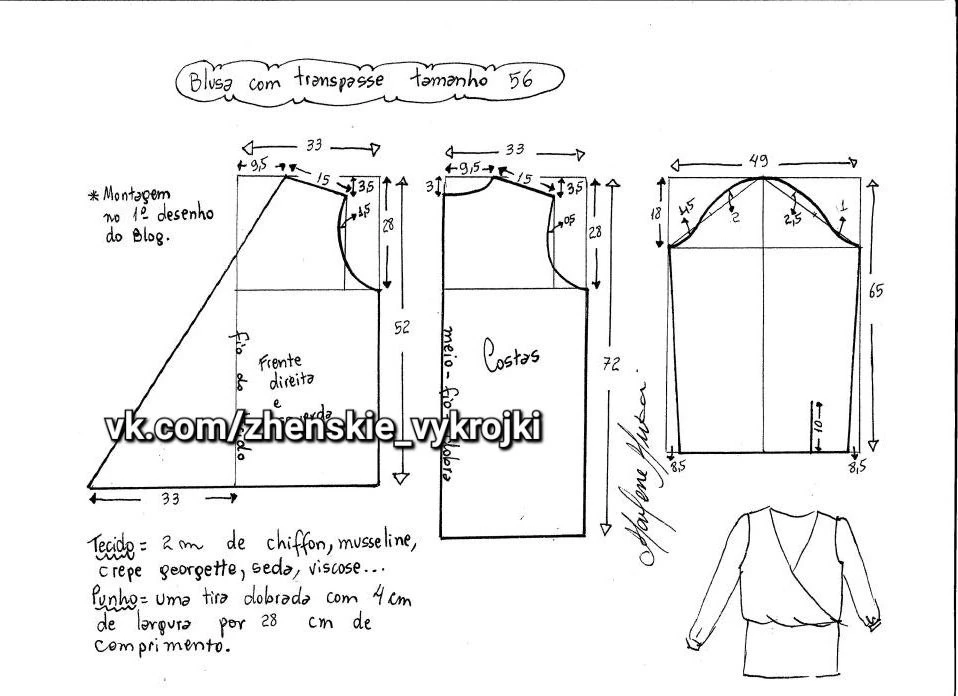 Blusa com transpasse tamanho 56
33
9,5
15
3,5
1,5
28
52
* Montagem
no 1º desenho
do Blog.
Frente
direita
e
33
33
9,5
15
3
3,5
0,5
28
72
Costas
meio - fio
49
18
1,5
2
2,5
1
65
10
8,5
8,5
vk.com/zhenskie_vykrojki
Marlene Mukai
Tecido = 2 m de chiffon, musseline,
crepe georgette, seda, viscose...
Punho = uma tira dobrada com 4 cm
de largura por 28 cm de
comprimento.